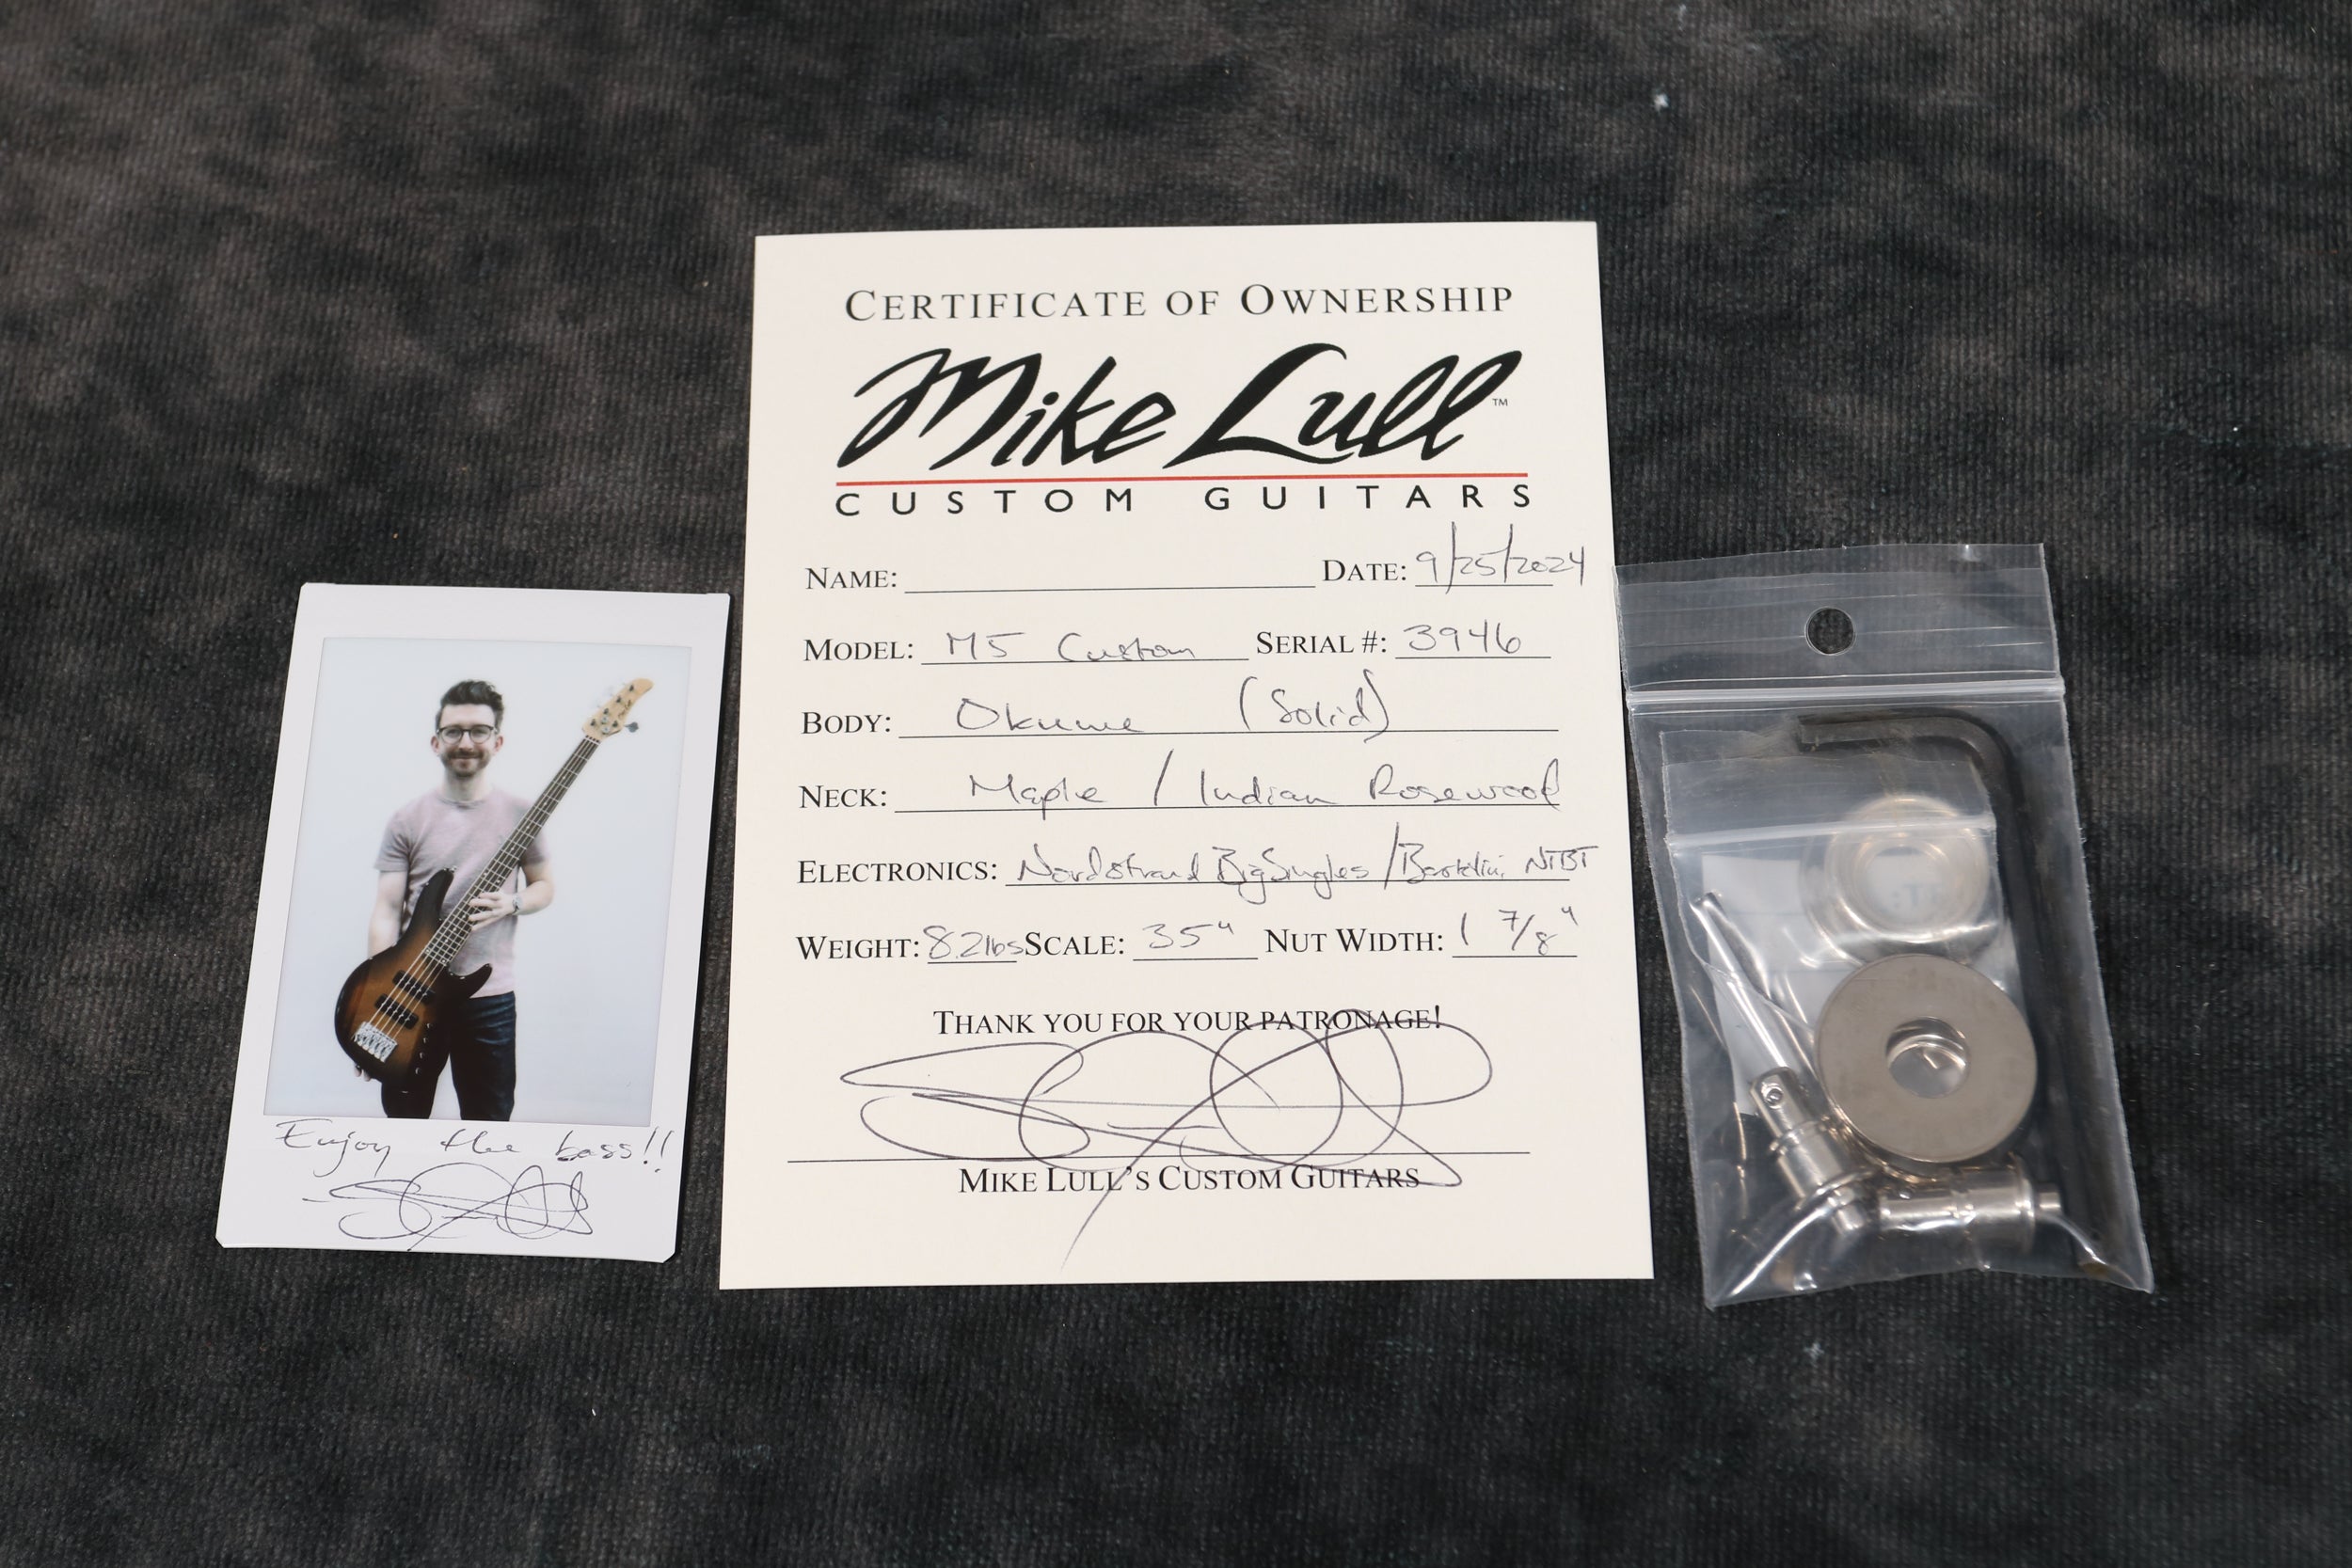 CERTIFICATE OF OWNERSHIP
Mike Lull™
CUSTOM GUITARS
NAME: DATE: 9/25/2024
MODEL: M5 Custom SERIAL #: 3946
BODY: Okume (Solid)
NECK: Maple / Indian Rosewood
ELECTRONICS: Nordstrand BigSingles / Bartolini NTBT
WEIGHT: 8.2lbs SCALE: 35" NUT WIDTH: 1 7/8"
THANK YOU FOR YOUR PATRONAGE!
MIKE LULL'S CUSTOM GUITARS
Enjoy the bass!!